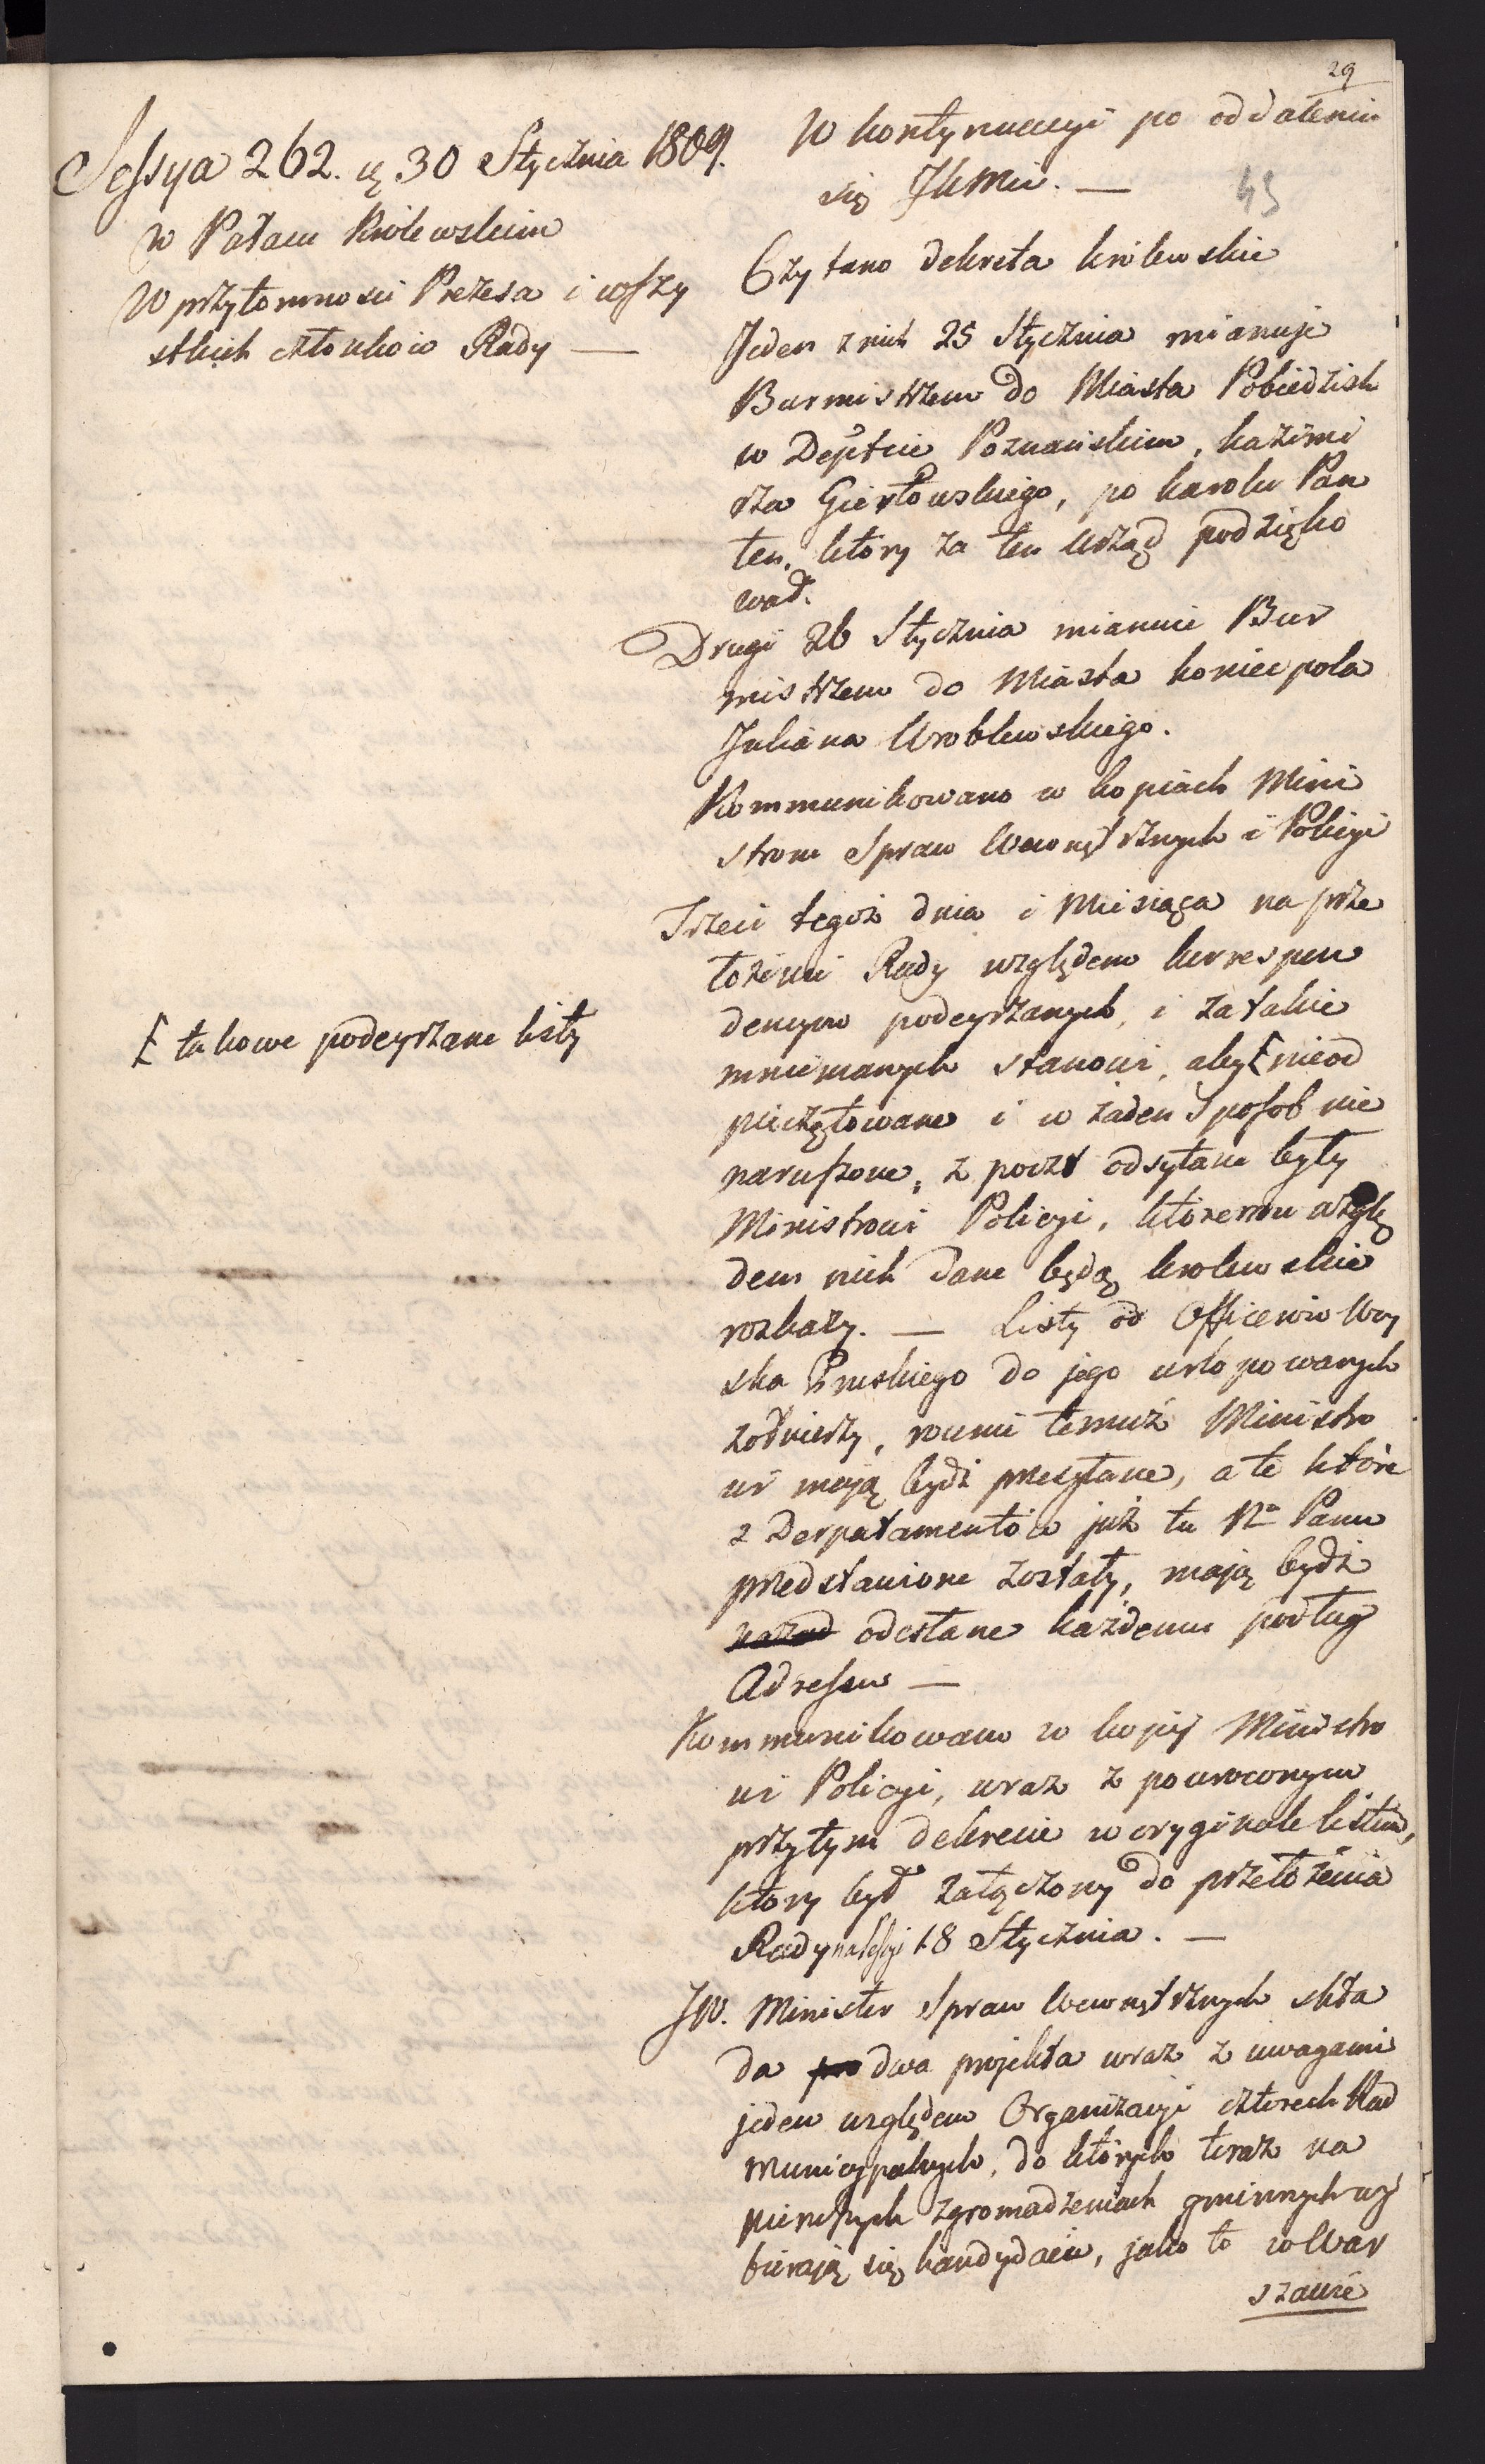 29
45
Sessya 262. d. 30 Stycznia 1809.
w Pałacu Królewskim
W przytomności Prezesa i wszy
stkich członków Rady —
W kontynuacyi po oddaleniu
się JKMci. —
Czytano dekreta królewskie
Jeden z nich 25 Stycznia mianuje
Burmistrzem do Miasta Pobiedzisk
w Depttcie Poznańskim, Kazimi
rza Gierłowskiego, po Karolu Pan
ten, który za ten Urząd podzięko
wał.
Drugi 26 Stycznia mianuie Bur
mistrzem do Miasta Koniecpola
Juliana Wroblewskiego.
Kommunikowano w kopiach Mini
strom Spraw Wewnętrznych i Policyi
Trzeci tegoż dnia i Miesiąca na prze
łożenie Rady względem korrespon
dencyow podeyrzanych, i za takie
mniemanych stanowi, aby [ nieod
pieczętowane i w żaden Sposob nie
naruszone, z poczt odsyłane były
Ministrowi Policyi, któremu wzglę
dem nich dane będą krolewskie
rozkazy. — Listy od Officerów Woy
ska Pruskiego do jego urlopowanych
żołnierzy, rownie temuż Ministro
wi mają bydź przesyłane, a te które
z Derpatamentów już tu Nu Panu
przedstawione zostały, mają bydź
nazad odesłane każdemu podług
Adressu —
[ takowe podeyrzane listy
Kommunikowano w kopij Ministro
wi Policyi, wraz z powroconym
przytym dekrecie w oryginale listem,
który był załączony do przełożenia
Rady na Sessyi 18 Stycznia. —
JW. Minister Spraw Wewnętrznych skła
da pro dwa projekta wraz z uwagami
jeden względem Organizacyi czterech Rad
municypalnych, do których teraz na
pierwszych zgromadzeniach gminnych wy
bierają się kandydaci, jako to w War
szawie